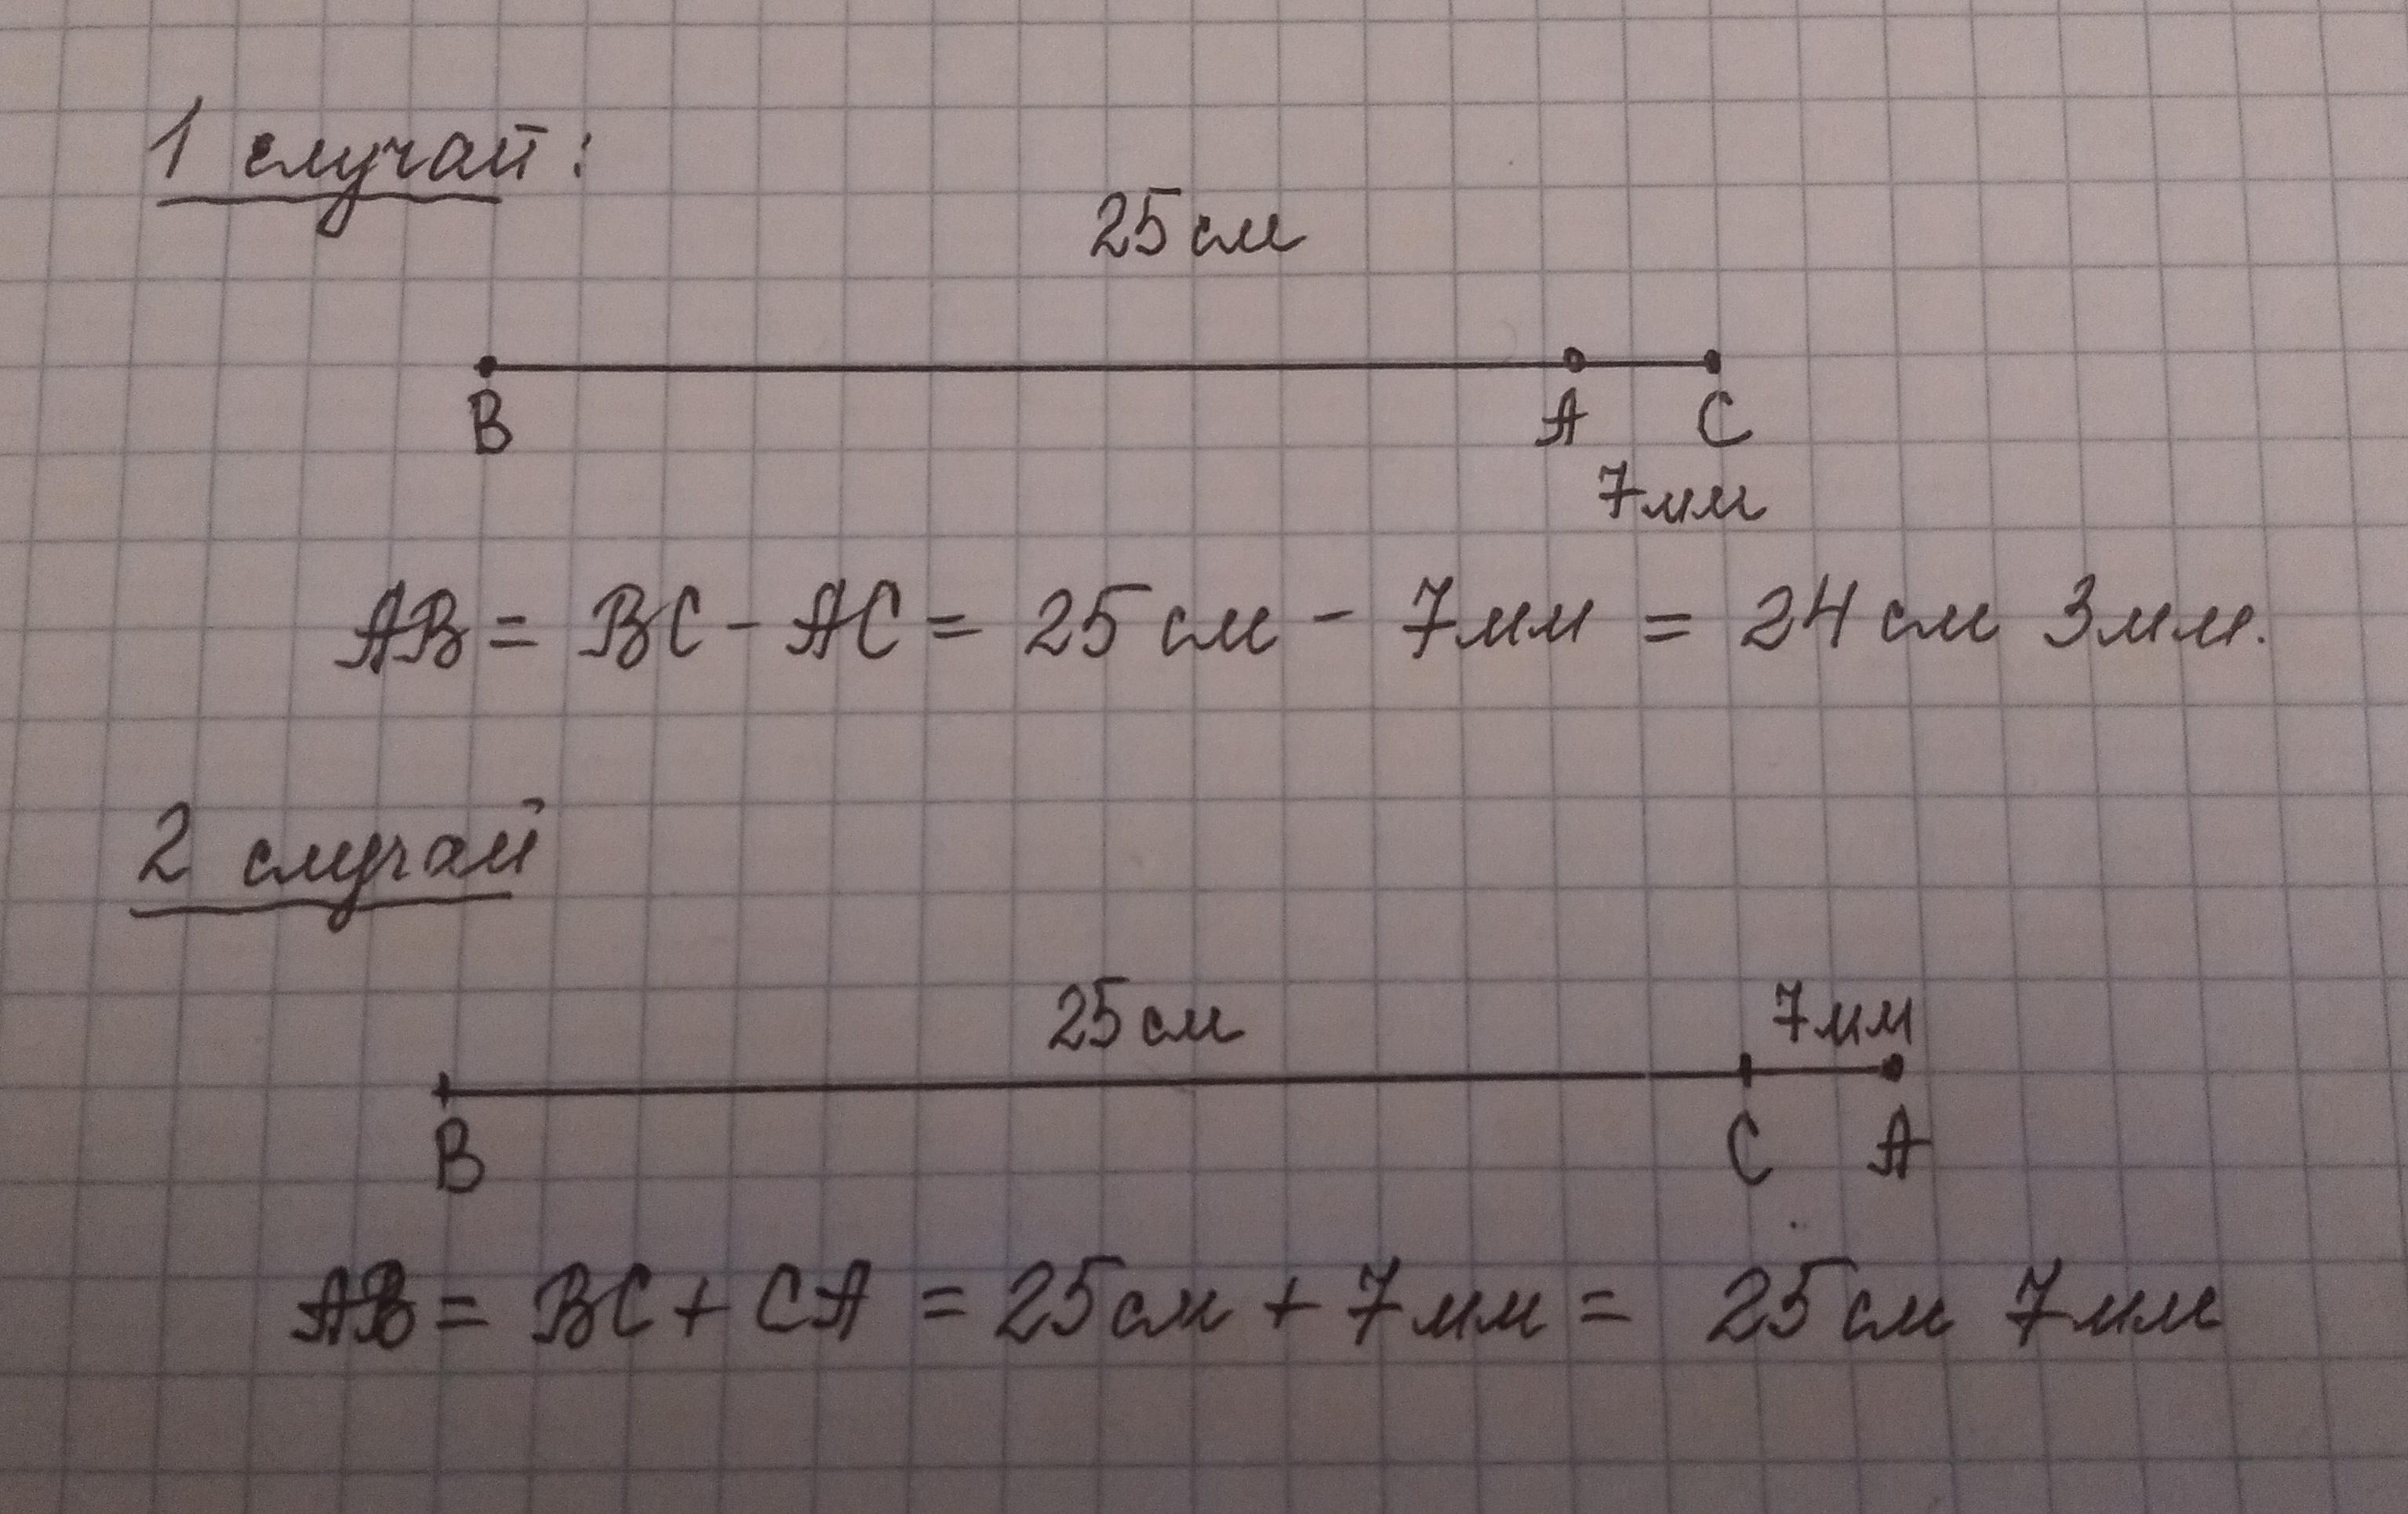 1 случай:
25 см
B A C
7 мм
AB = BC - AC = 25 см - 7 мм = 24 см 3 мм.
2 случай
25 см 7 мм
B C A
AB = BC + CA = 25 см + 7 мм = 25 см 7 мм